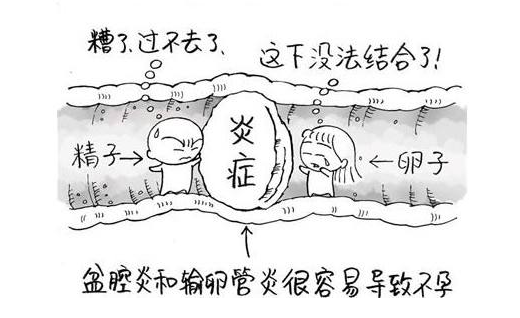 糟了、过不去了、
这下没法结合了!
炎症
精子
卵子
盆腔炎和输卵管炎很容易导致不孕